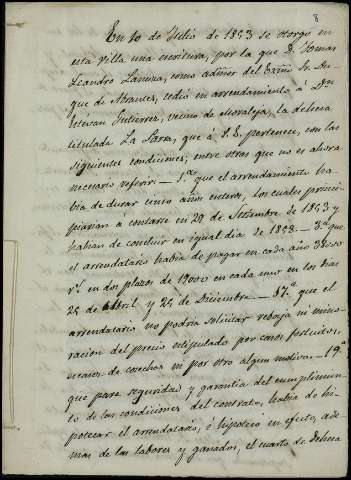 8
En 10 de Julio de 1853 se otorgó en
esta villa una escritura, por la que D. Tomas
Leandro Lanuza, como admor del Exmo Sr. Du-
que de Abrantes, cedió en arrendamiento á Dn
Estévan Gutierrez, vecino de Moraleja, la dehesa
titulada La Parra, que á S.E. pertenece, con las
siguientes condiciones, entre otras que no es ahora
necesario referir. — 1.ª que el arrendamiento ha-
bia de durar cinco años enteros, los cuales princi-
piarian á contarse en 29 de Setiembre de 1853 y
habian de concluir en igual dia de 1858. — 3.ª que
el arrendatario habia de pagar en cada año 38000
rs. en dos plazos de 19000 en cada uno en los dias
25 de Abril y 25 de Diciembre. — 17.ª que el
arrendatario no podria solicitar rebaja ni mino-
racion del precio estipulado por casos fortuitos,
escasez de cosechas ni por otro algun motivo. — 19.ª
que para seguridad y garantia del cumplimien-
to de las condiciones del contrato, habia de hi-
potecar el arrendatario, é hipotecó en efecto, ade-
mas de las labores y ganados, el cuarto de dehesa